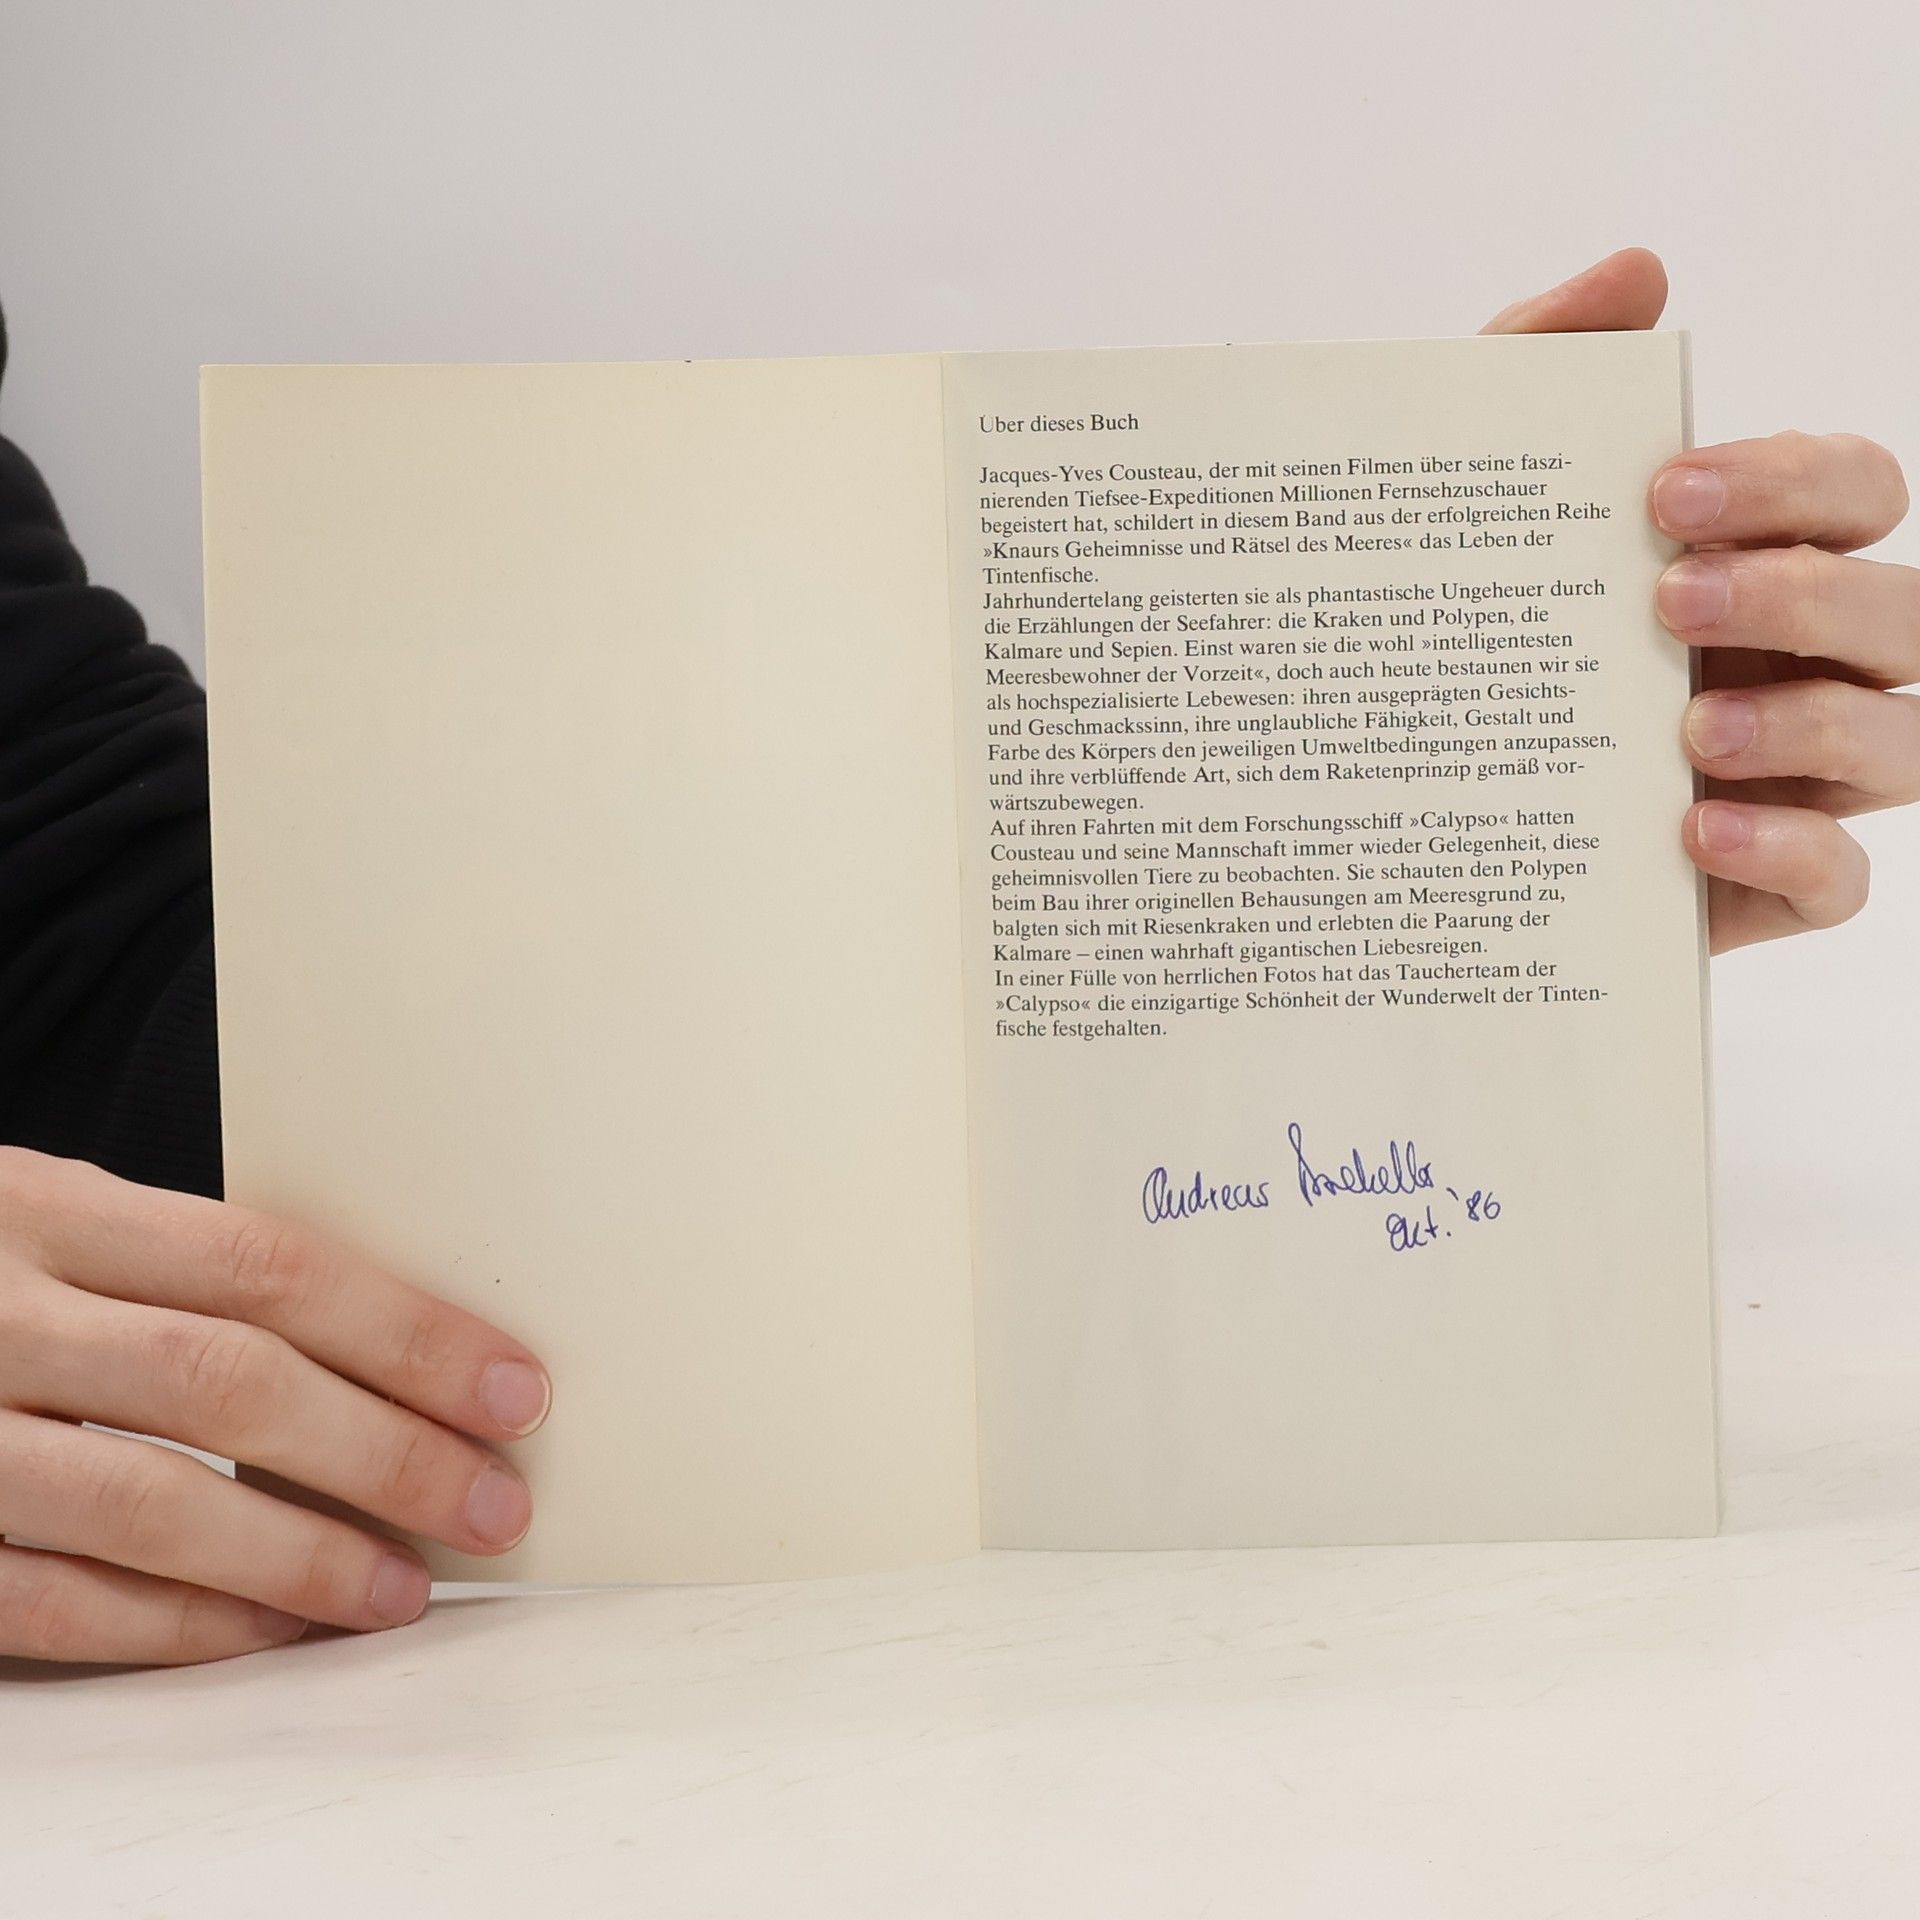 Über dieses Buch
Jacques-Yves Cousteau, der mit seinen Filmen über seine faszi-
nierenden Tiefsee-Expeditionen Millionen Fernsehzuschauer
begeistert hat, schildert in diesem Band aus der erfolgreichen Reihe
»Knaurs Geheimnisse und Rätsel des Meeres« das Leben der
Tintenfische.
Jahrhundertelang geisterten sie als phantastische Ungeheuer durch
die Erzählungen der Seefahrer: die Kraken und Polypen, die
Kalmare und Sepien. Einst waren sie die wohl »intelligentesten
Meeresbewohner der Vorzeit«, doch auch heute bestaunen wir sie
als hochspezialisierte Lebewesen: ihren ausgeprägten Gesichts-
und Geschmackssinn, ihre unglaubliche Fähigkeit, Gestalt und
Farbe des Körpers den jeweiligen Umweltbedingungen anzupassen,
und ihre verblüffende Art, sich dem Raketenprinzip gemäß vor-
wärtszubewegen.
Auf ihren Fahrten mit dem Forschungsschiff »Calypso« hatten
Cousteau und seine Mannschaft immer wieder Gelegenheit, diese
geheimnisvollen Tiere zu beobachten. Sie schauten den Polypen
beim Bau ihrer originellen Behausungen am Meeresgrund zu,
balgten sich mit Riesenkraken und erlebten die Paarung der
Kalmare – einen wahrhaft gigantischen Liebesreigen.
In einer Fülle von herrlichen Fotos hat das Taucherteam der
»Calypso« die einzigartige Schönheit der Wunderwelt der Tinten-
fische festgehalten.
Andreas
Okt. '86